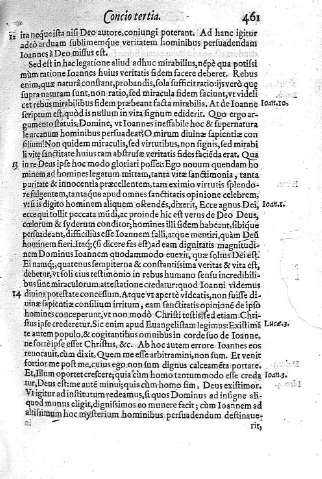 Concio tertia. 461
12 ita neque ista nisi Deo autore, coniungi poterant. Ad hanc igitur
adeò arduam sublimemque veritatem hominibus persuadendam
Ioannes à Deo missus est.
Sed est in hac legatione aliud adhuc mirabilius, nẽpè qua potissi
mùm ratione Ioannes huius veritatis fidem facere deberet. Rebus
enim, quæ natura constant, probandis, sola sufficit ratio: ijs verò quę
supra naturam sunt, non ratio, sed miracula fidem faciunt, vt videli
cet rebus mirabilibus fidem præbeant facta mirabilia. At de Ioanne Ioan. 10.
scriptum est, quòd is nullum in vita signum ediderit. Quo ergo ar-
gumento statuis Domine, vt Ioannes ineffabile hoc & supernatura
le arcanum hominibus persuadeat? O mirum diuinæ sapientiæ con
silium! Non quidem miraculis, sed virtutibus, non signis, sed mirabi
li vitę sanctitate huius tam abstrusæ veritatis fidem faciẽda erat. Qua
13 in re Deus ipse hoc modo gloriari posset: Ego nouum quendam ho
minem ad homines legatum mittam, tanta vitæ sanctimonia, tanta
puritate & innocentia præcellentem, tam eximio virtutis splendo-
re fulgentem, tantaque apud omnes sanctitatis opinione celebrem,
vt si is digito hominem aliquem ostendẽs, dixerit, Ecce agnus Dei, Ioan. 1.
ecce qui tollit peccata mũdi, ac proinde hic est verus de Deo Deus,
cœlorum & syderum conditor; homines illi fidem habeant, sibique
persuadeant, difficilius esse Ioannem falli, atque mentiri, quàm Deũ
hominem fieri. Itaque (si dicere fas est) ad eam dignitatis magnitudi
nem Dominus Ioannem quodammodo euexit, quæ solius Dei est.
Ei namque, quatenus sempiterna & constantissima veritas & vita est,
debetur, vt soli eius testimonio in rebus humano sensu incredibili-
bus sine miraculorum attestatione credatur: quod Ioanni videmus
14 diuina potestate concessum. Atque vt apertè videatis, non fuisse di-
uinæ sapientiæ consilium irritum, eam sanctitatis opinionẽ de ipso
homines conceperunt, vt non modò Christi testis, sed etiam Chri-
stus ipse crederetur. Sic enim apud Euangelistam legimus: Existimã Luc. 3.
te autem populo, & cogitantibus omnibus in corde suo de Ioanne,
ne fortè ipse esset Christus, &c. Ab hoc autem errore Ioannes eos
reuocauit, cùm dixit. Quem me esse arbitramini, non sum. Et venit
fortior me post me, cuius ego non sum dignus calceamẽta portare.
Et, Illum oportet crescere, quia cùm homo tantummodo esse creda Ioan. 3.
tur, Deus est: me autẽ minui; quia cùm homo sim, Deus existimor.
Vt igitur ad institutum redeamus, si quos Dominus ad insigne ali-
quod munus eligit, dignissimos eo munere facit; cùm Ioannem ad
altissimum hoc mysterium hominibus persuadendum destinaue-
rit,